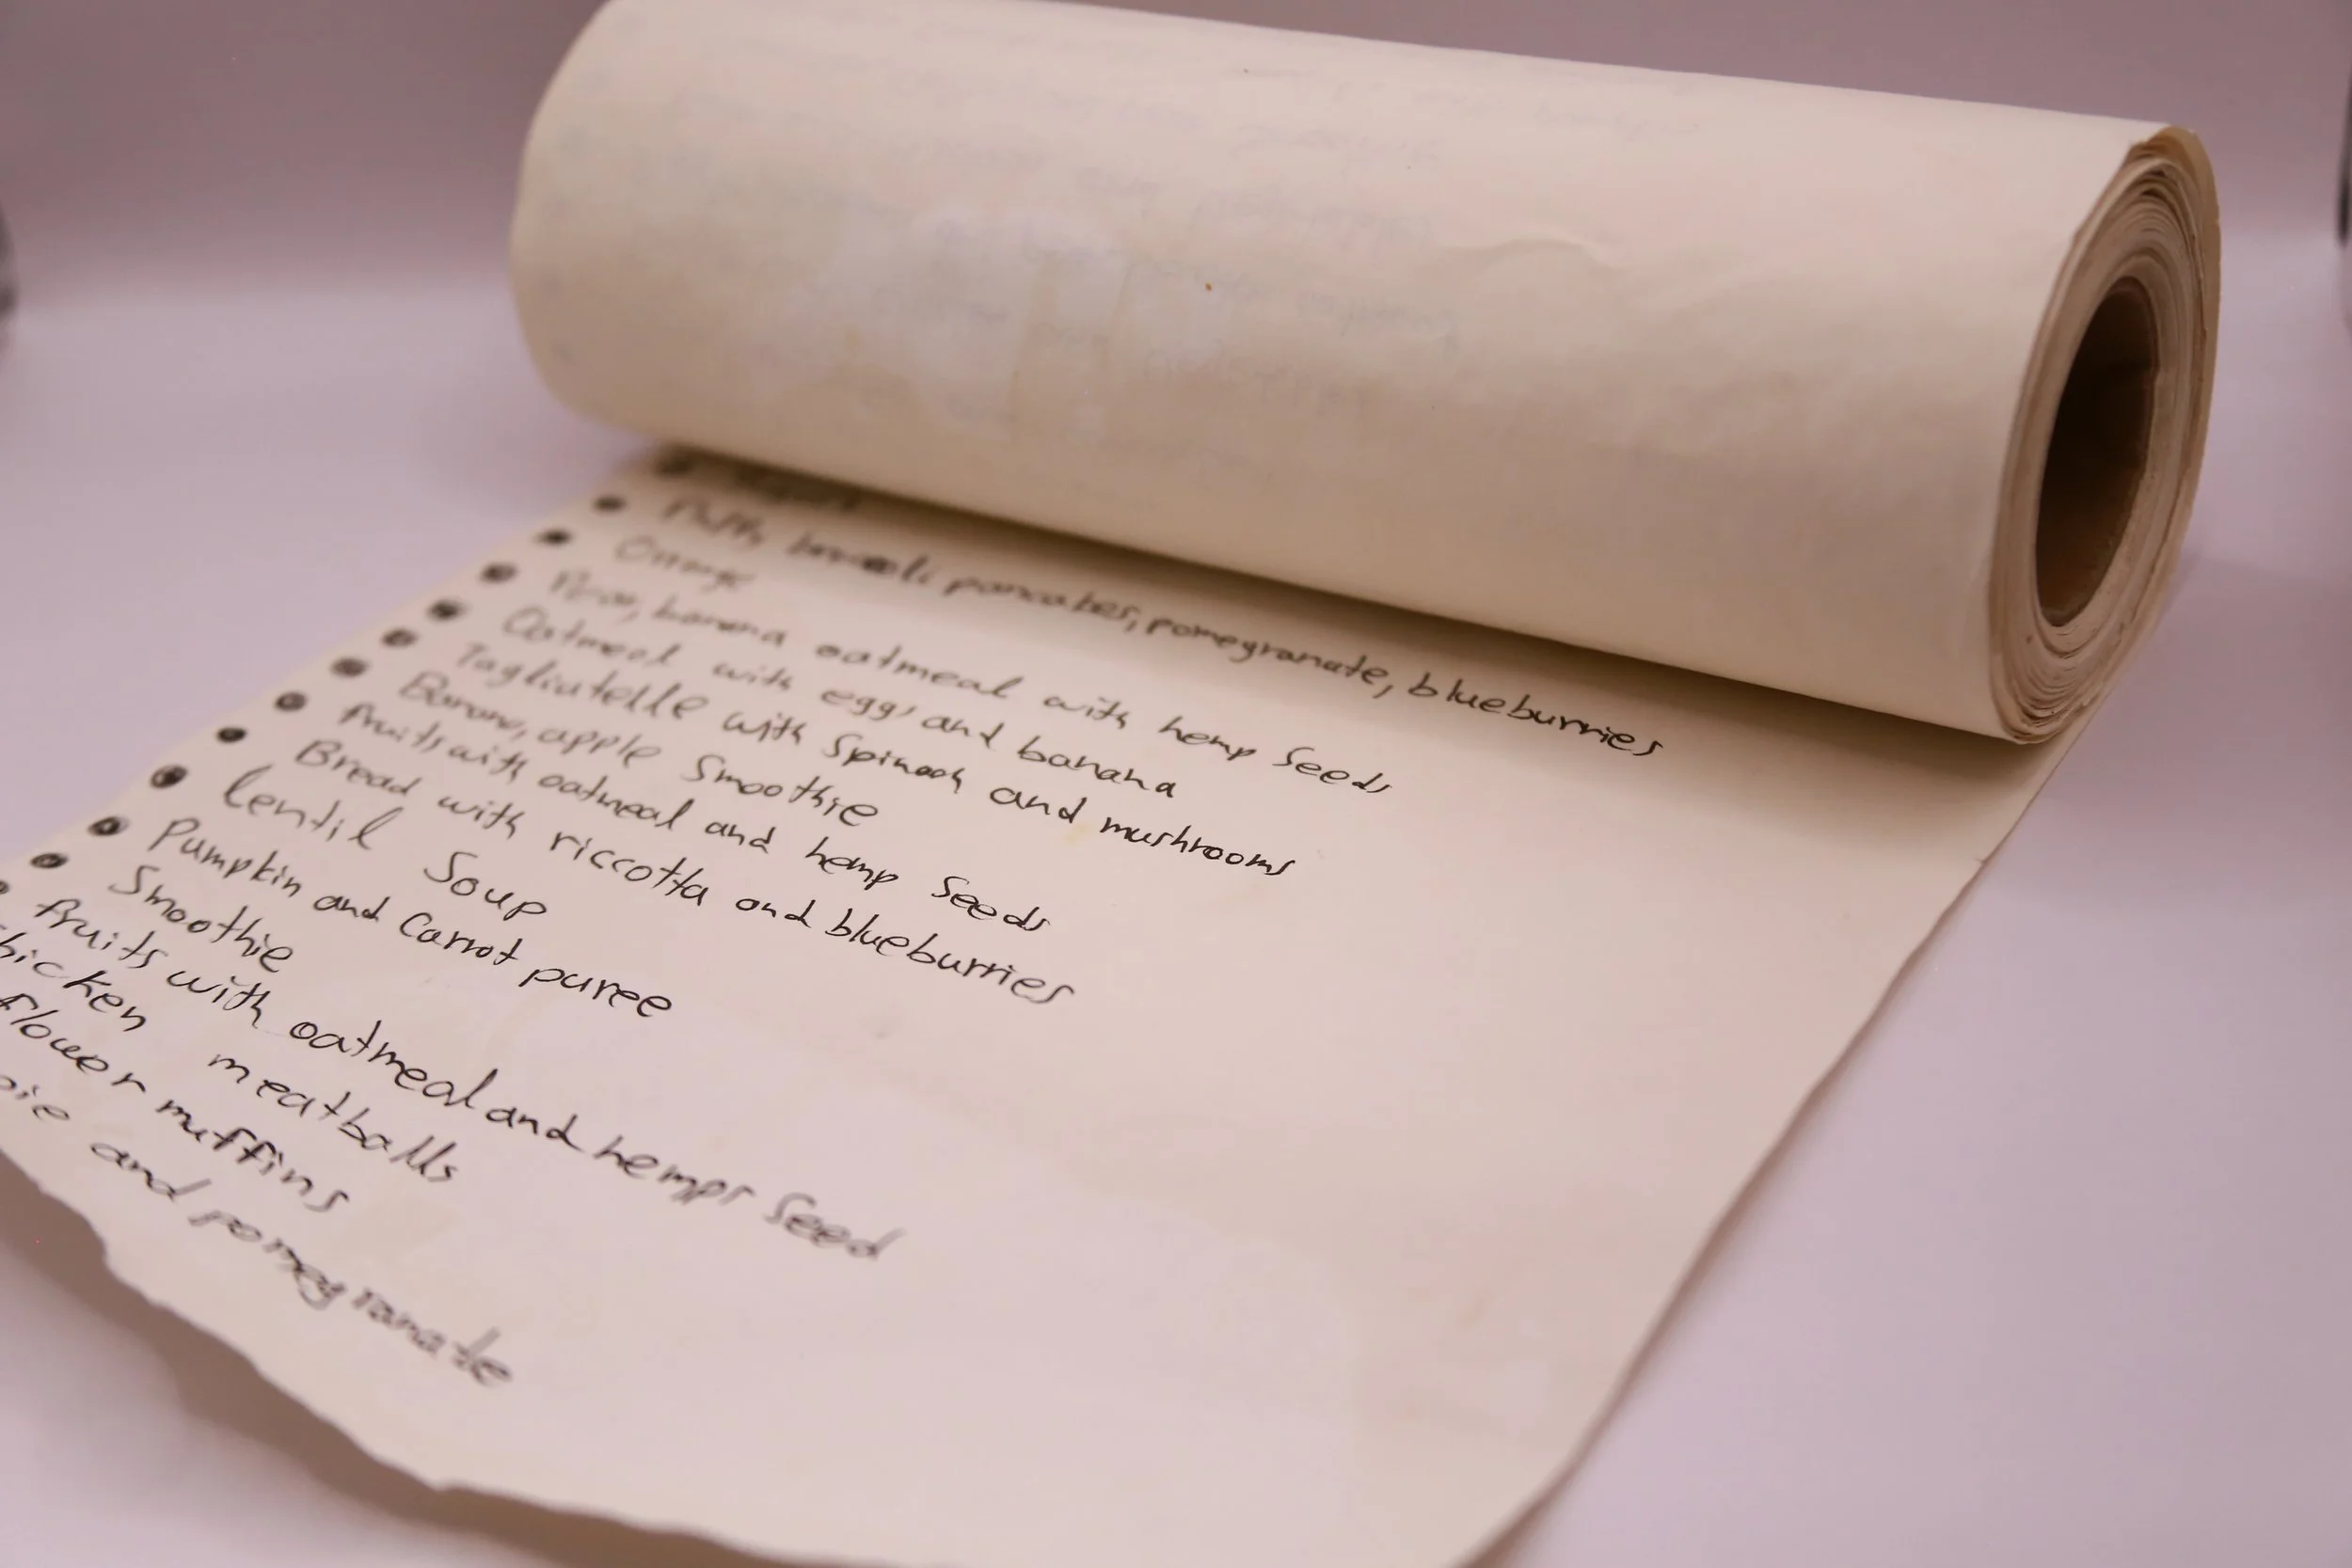 Fluffy broccoli pancakes, pomegranate, blueburries
Orange
Pear, banana oatmeal with hemp Seeds
Oatmeal with eggs and banana
Tagliatelle with Spinach and mushrooms
Banana, apple Smoothie
fruits with oatmeal and hemp Seeds
Bread with riccotta and blueburries
lentil Soup
Pumpkin and Carrot puree
Smoothie
fruits with oatmeal and hemps Seed
hicken meatballs
flower muffins
and pomegranate